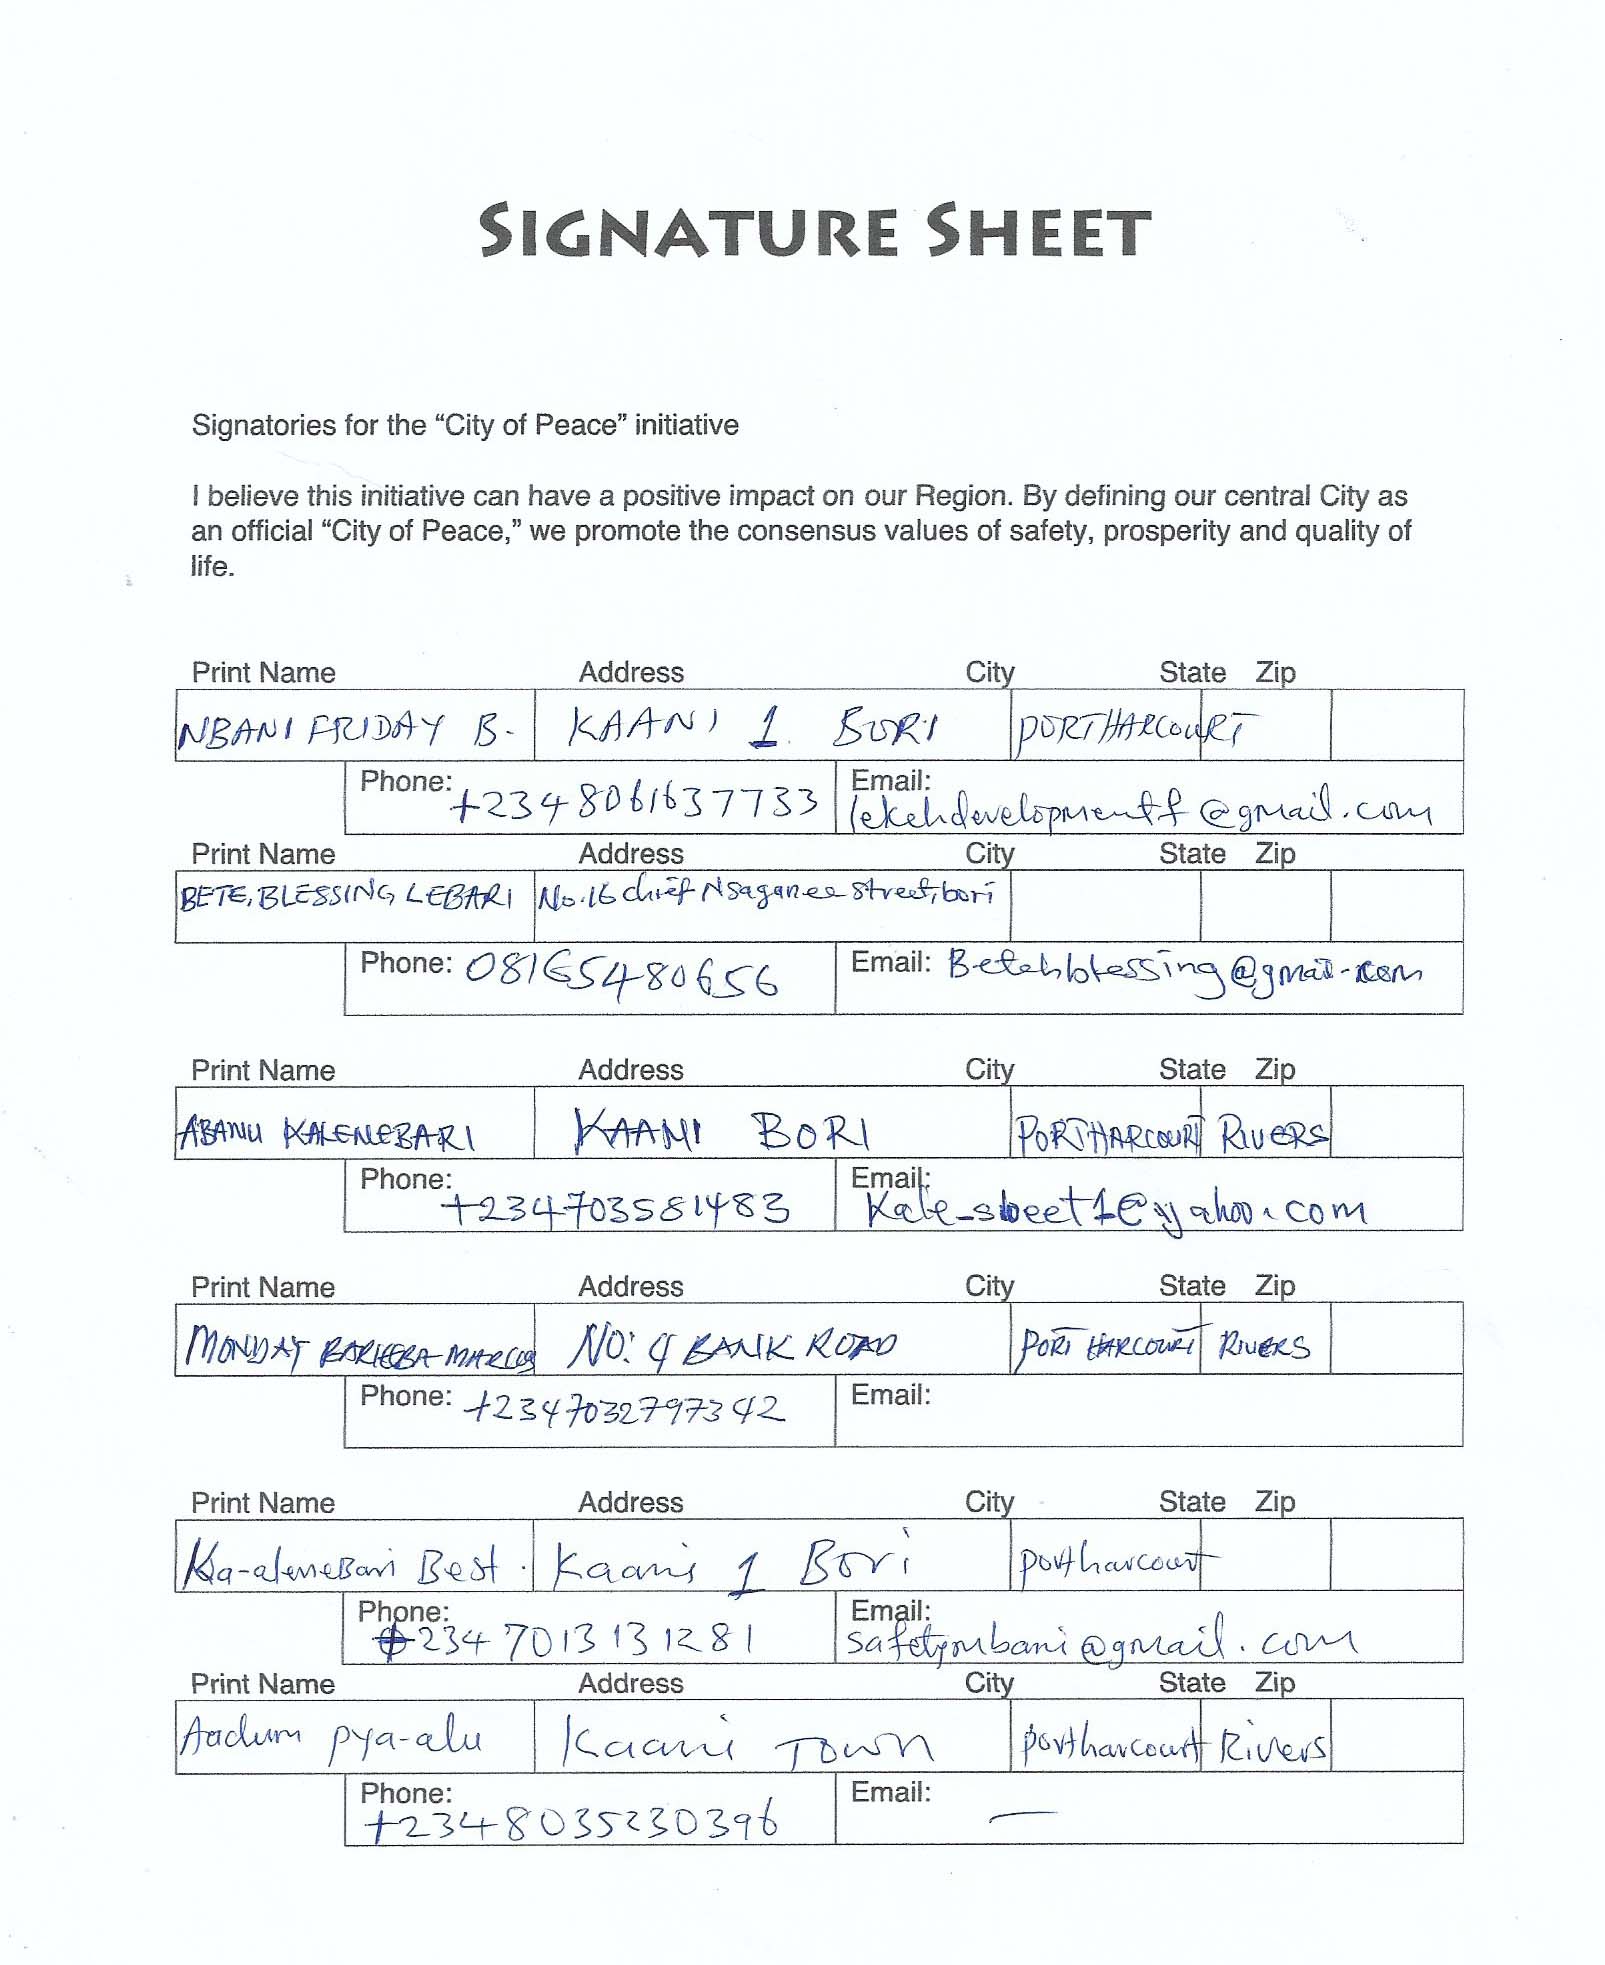 SIGNATURE SHEET
Signatories for the “City of Peace” initiative
I believe this initiative can have a positive impact on our Region. By defining our central City as
an official “City of Peace,” we promote the consensus values of safety, prosperity and quality of
life.
Print Name Address City State Zip
NBANI FRIDAY B. KAANI 1 BORI PORTHARCOURT
Phone: +2348061637733 Email: lekehdevelopmentf@gmail.com
Print Name Address City State Zip
BETE, BLESSING LEBARI No.16 chief Nsaganee street, bori
Phone: 08165480656 Email: Betehblessing@gmail.com
Print Name Address City State Zip
ABANU KALENEBARI KAANI BORI PORTHARCOURT RIVERS
Phone: +234703581483 Email: Kale_sbeet1@yahoo.com
Print Name Address City State Zip
MONDAY BARIEBA MARCUS NO: 4 BANK ROAD PORT HARCOURT RIVERS
Phone: +2347032797342 Email:
Print Name Address City State Zip
Ka-alenebari Best. Kaani 1 Bori portharcourt
Phone: +234 7013131281 Email: safetynbani@gmail.com
Print Name Address City State Zip
Aadum pya-alu Kaani Town portharcourt Rivers
Phone: +2348035230396 Email: —